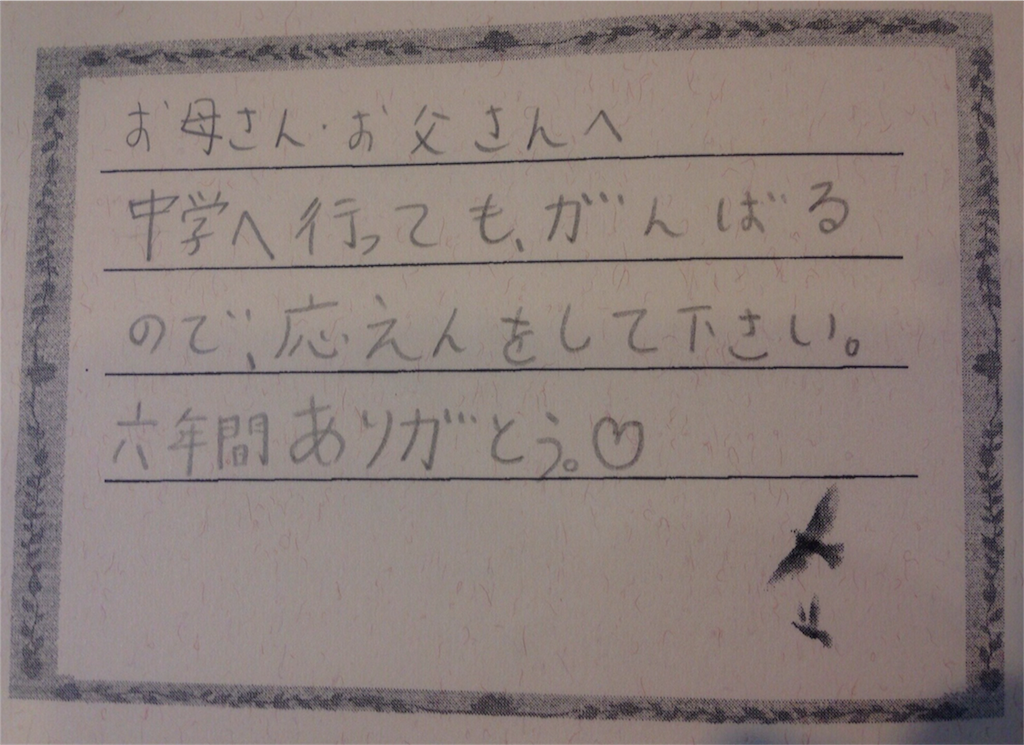 お母さん・お父さんへ
中学へ行っても、がんばる
ので、応えんをして下さい。
六年間ありがとう。♡